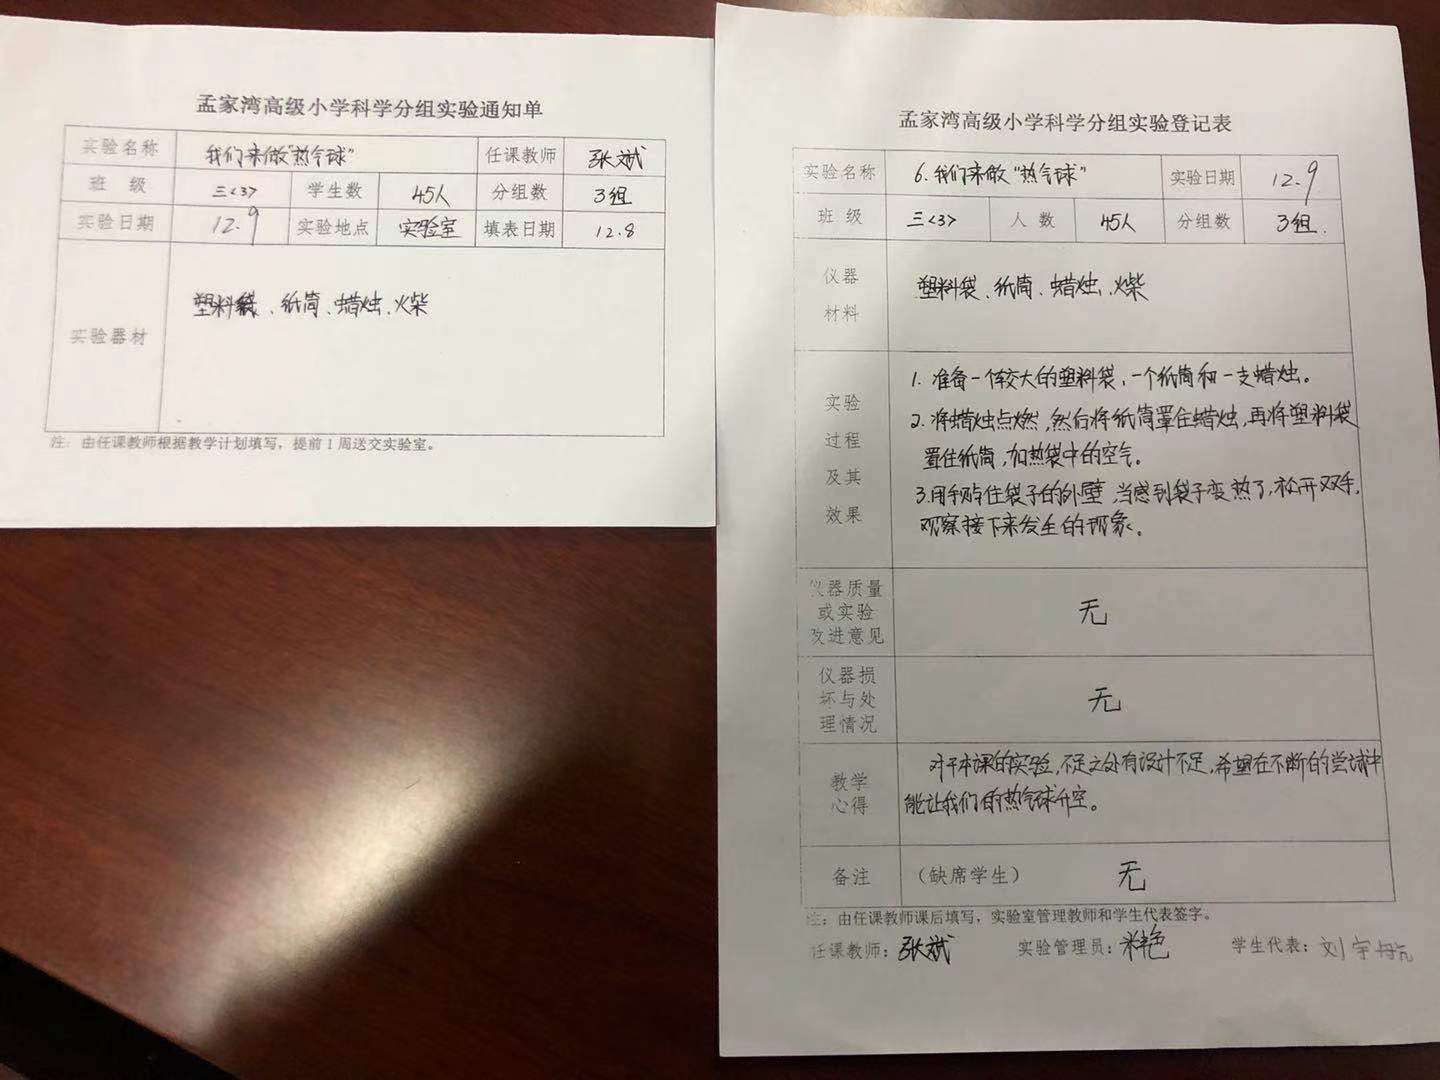 孟家湾高级小学科学分组实验通知单
实验名称 我们来做"热气球" 任课教师 张斌
班 级 三<3> 学生数 45人 分组数 3组
实验日期 12.9 实验地点 实验室 填表日期 12.8
实验器材 塑料袋、纸筒、蜡烛、火柴
注：由任课教师根据教学计划填写，提前1周送交实验室。
孟家湾高级小学科学分组实验登记表
实验名称 6.我们来做"热气球" 实验日期 12.9
班 级 三<3> 人 数 45人 分组数 3组.
仪器
材料
塑料袋、纸筒、蜡烛、火柴
实验
过程
及其
效果
1. 准备一个较大的塑料袋，一个纸筒和一支蜡烛。
2. 将蜡烛点燃，然后将纸筒罩住蜡烛，再将塑料袋
罩住纸筒，加热袋中的空气。
3.用手贴住袋子的外壁，当感到袋子变热了，松开双手，
观察接下来发生的现象。
仪器质量
或实验
改进意见
无
仪器损
坏与处
理情况
无
教学
心得
对于本课的实验，不足之处有设计不足，希望在不断的尝试中
能让我们的热气球升空。
备注 （缺席学生） 无
注：由任课教师课后填写，实验室管理教师和学生代表签字。
任课教师：张斌 实验管理员： 学生代表：刘宇